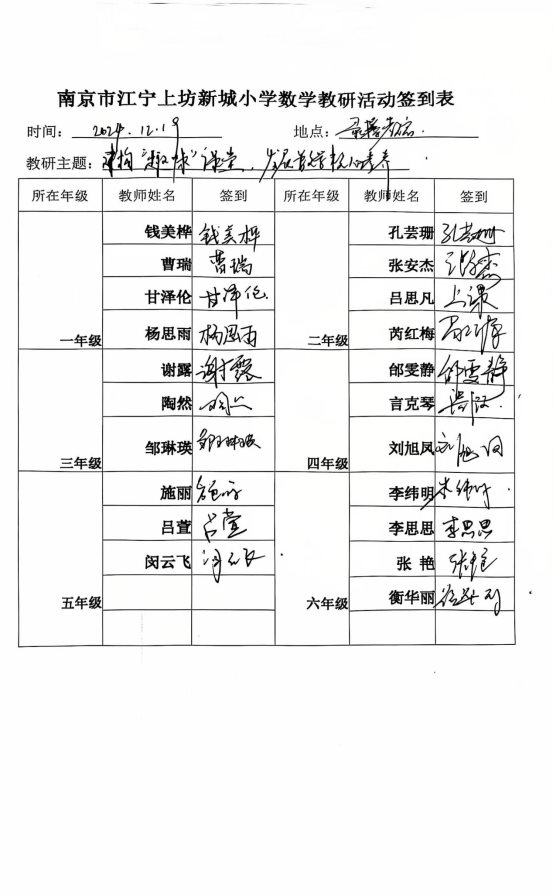 南京市江宁上坊新城小学数学教研活动签到表
时间: 2024.12.19 地点: 录播教室.
教研主题: 建构"趣味"课堂, 发展数学核心素养
所在年级 教师姓名 签到 所在年级 教师姓名 签到
钱美桦 钱美桦 孔芸珊 孔芸珊
曹瑞 曹瑞 张安杰 张安杰
甘泽伦 甘泽伦 吕思凡 上课
一年级 杨思雨 杨思雨 二年级 芮红梅
谢露 谢露 邰雯静 邰雯静
陶然 言克琴
邹琳瑛 邹琳瑛 刘旭凤 刘旭凤
三年级 四年级
施丽 施丽 李纬明 李纬明
吕萱 吕萱 李思思 李思思
闵云飞 闵云飞 张 艳 张艳
五年级 六年级 衡华丽